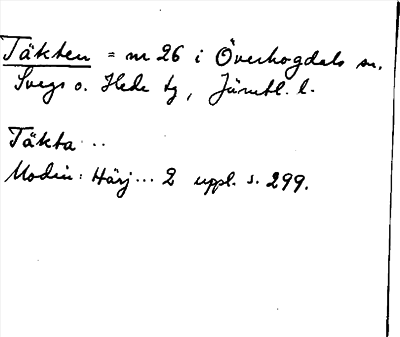 Täkten = nr 26 i Överhogdals sn.
Svegs o. Hede tg, Jämtl. l.
Täkta ...
Modin: Härj... 2 uppl. s. 299.